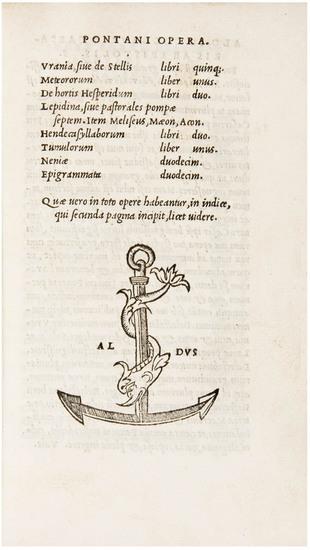 PONTANI OPERA.
Vrania, siue de Stellis libri quinq;.
Meteororum liber unus.
De hortis Hesperidum libri duo.
Lepidina, siue pastorales pompæ
septem. Item Meliseus, Mæon, Acon.
Hendecasyllaborum libri duo.
Tumulorum liber unus.
Neniæ duodecim.
Epigrammata duodecim.
Quæ uero in toto opere habeantur, in indice,
qui secunda pagina incipit, licet uidere.
AL DVS